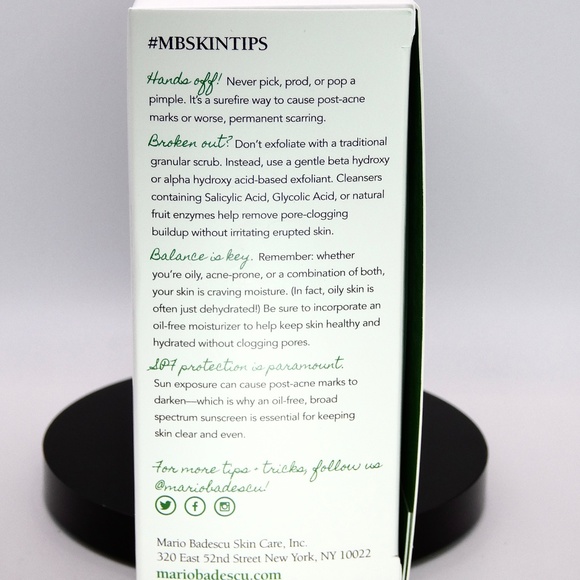 #MBSKINTIPS
Hands off! Never pick, prod, or pop a
pimple. It's a surefire way to cause post-acne
marks or worse, permanent scarring.
Broken out? Don't exfoliate with a traditional
granular scrub. Instead, use a gentle beta hydroxy
or alpha hydroxy acid-based exfoliant. Cleansers
containing Salicylic Acid, Glycolic Acid, or natural
fruit enzymes help remove pore-clogging
buildup without irritating erupted skin.
Balance is key. Remember: whether
you're oily, acne-prone, or a combination of both,
your skin is craving moisture. (In fact, oily skin is
often just dehydrated!) Be sure to incorporate an
oil-free moisturizer to help keep skin healthy and
hydrated without clogging pores.
SPF protection is paramount.
Sun exposure can cause post-acne marks to
darken—which is why an oil-free, broad
spectrum sunscreen is essential for keeping
skin clear and even.
For more tips + tricks, follow us
@mariobadescu!
Mario Badescu Skin Care, Inc.
320 East 52nd Street New York, NY 10022
mariobadescu.com